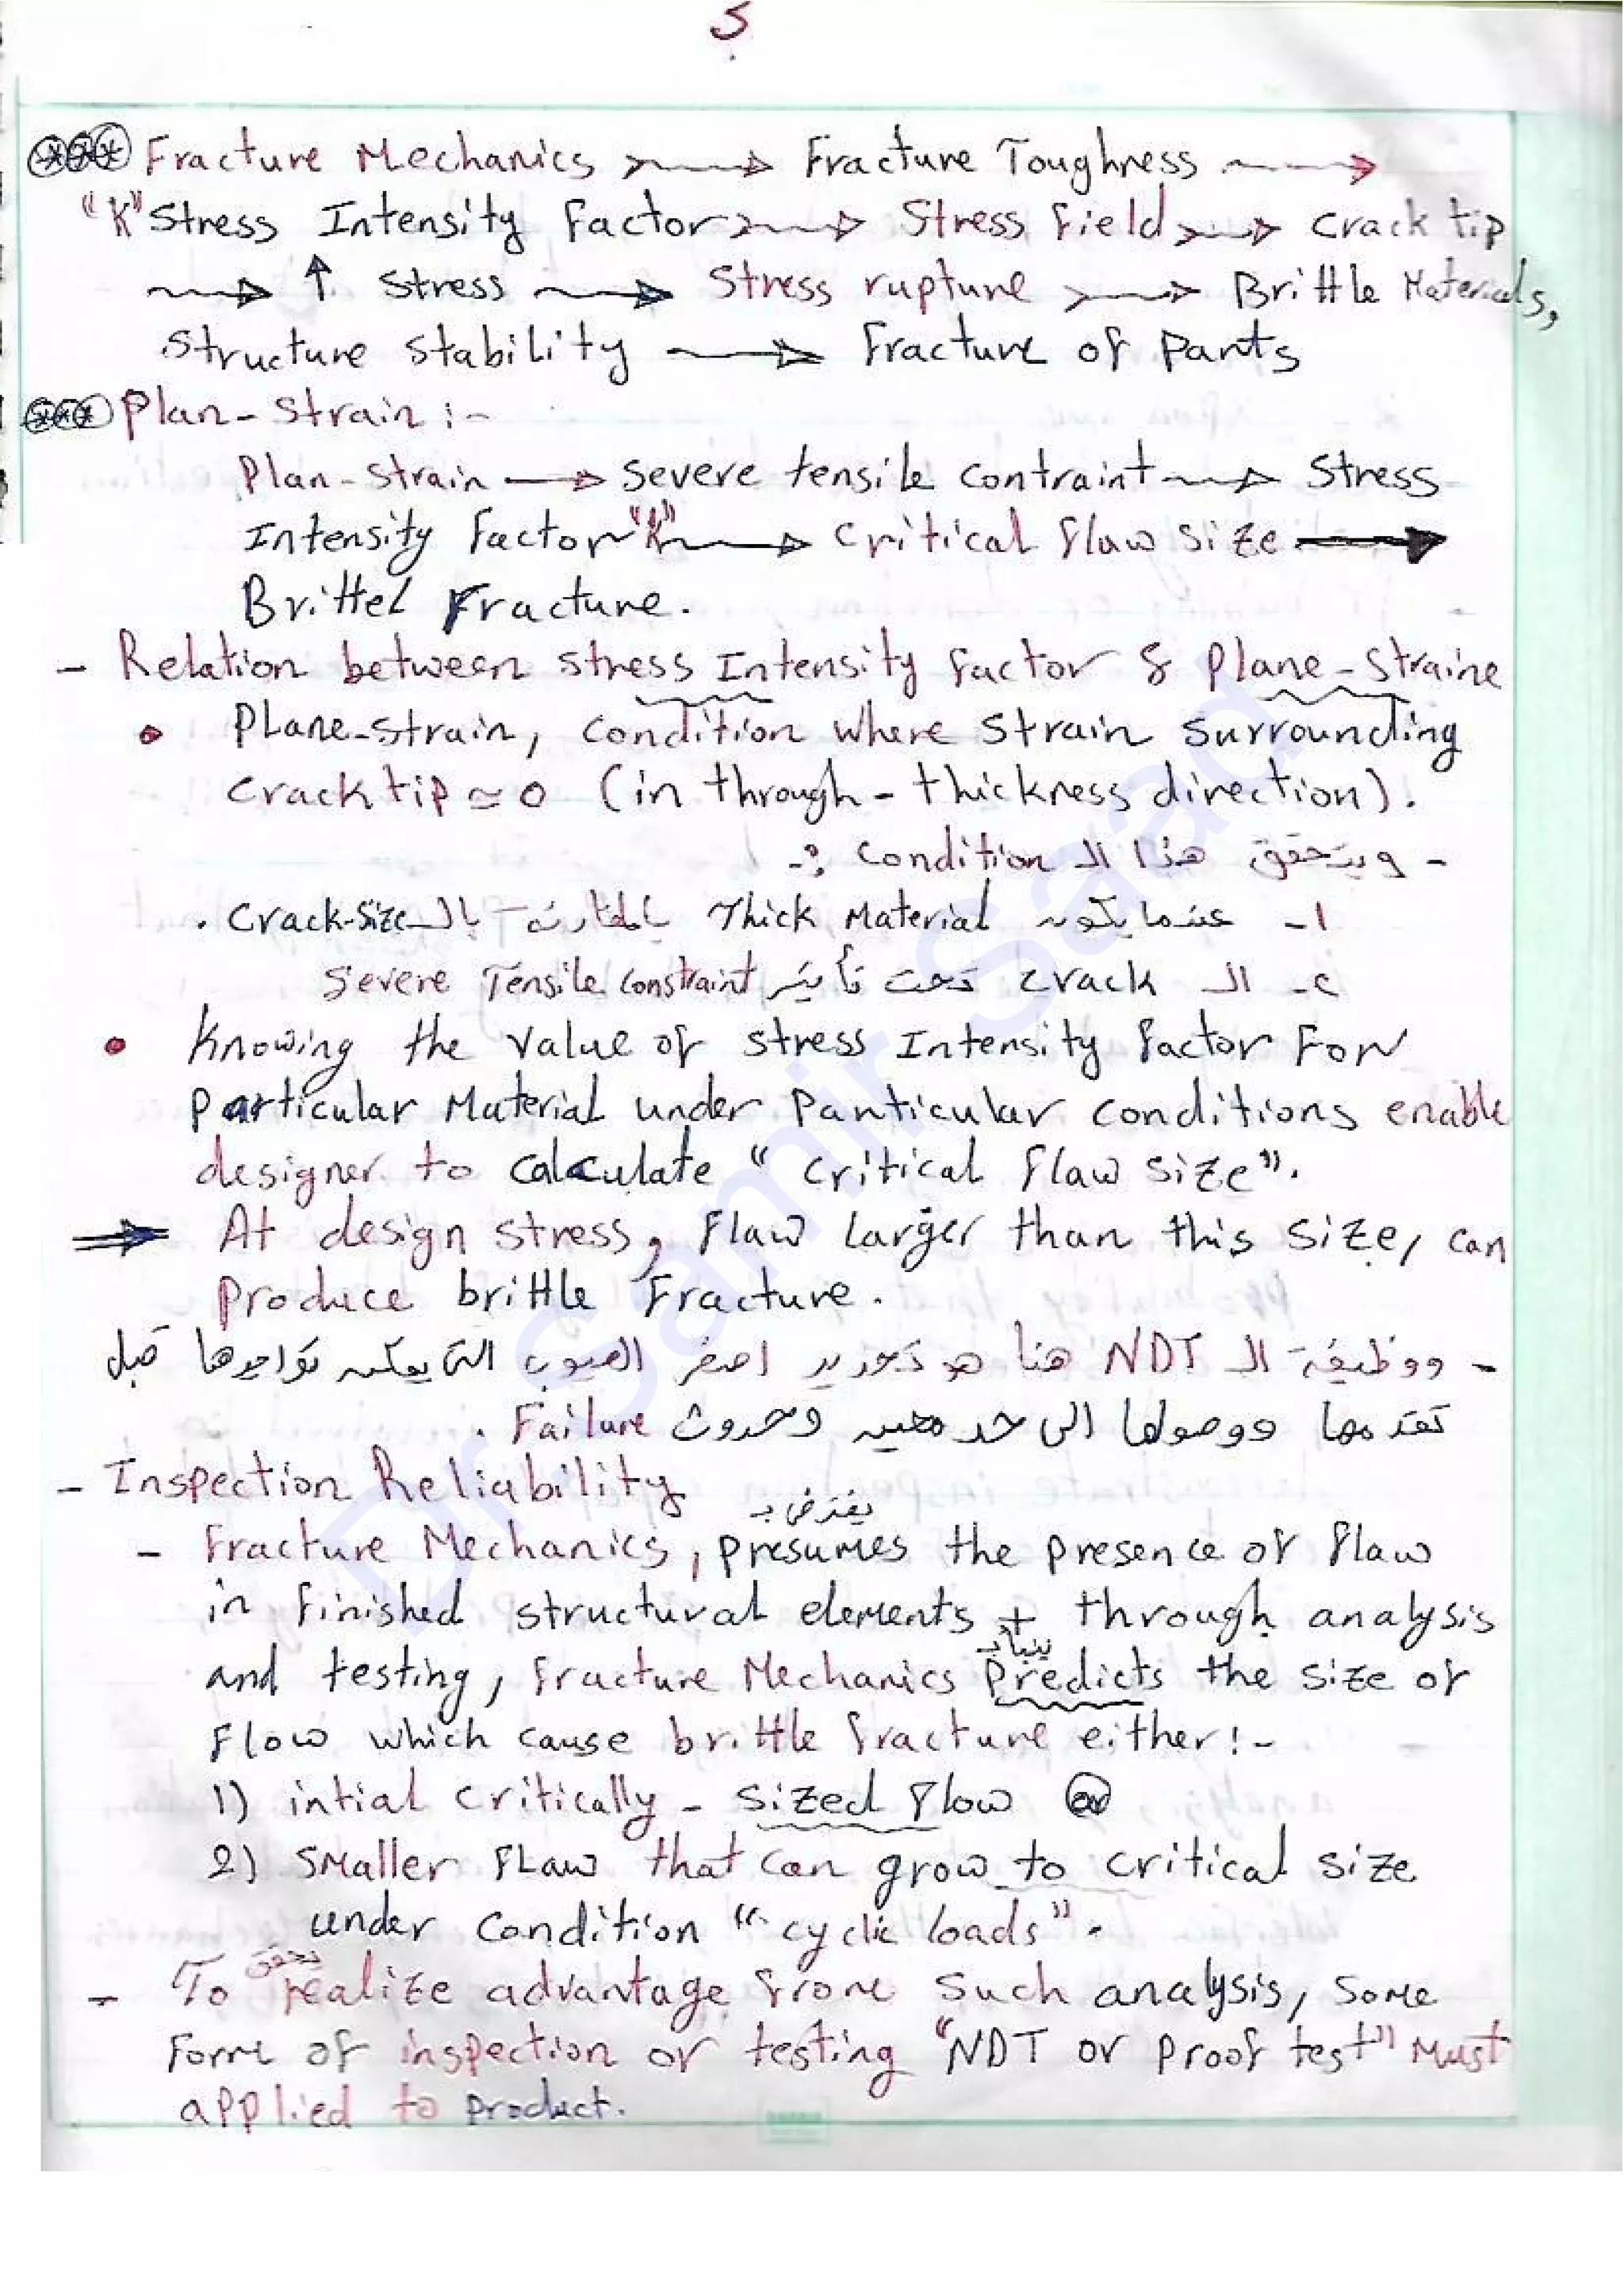 5
Fracture Mechanics → Fracture Toughness →
"K" Stress Intensity Factor → Stress Field → Crack tip
→ ↑ Stress → Stress rupture → Brittle Materials,
Structure stability → Fracture of Parts
Plan-strain :-
Plan-strain → severe tensile contraint → Stress
Intensity factor "K" → Critical flaw size →
Brittel Fracture.
- Relation between stress Intensity factor & Plane-straine
• Plane-strain, condition where strain surrounding
crack tip ≃ 0 (in through-thickness direction).
- ويتحقق هذا الـ condition :-
١- عندما يكون Thick Material بالمقارنة بالـ Crack-size .
٢- الـ crack تحت تأثير severe Tensile constraint
• Knowing the value of stress Intensity factor For
Particular Material under Particular conditions enable
designer to calculate " critical flaw size".
⇒ At design stress, flaw larger than this size, can
produce brittle Fracture.
- ووظيفة الـ NDT هنا هو تحديد اصغر العيوب التى يمكن تواجدها قبل
تقدمها ووصولها الى حد معين وحدوث Failure .
- Inspection Reliability
يفترض بـ
- Fracture Mechanics, presumes the presence of flaw
in finished structural elements + through analysis
يتنبأ بـ
and testing, fracture Mechanics Predicts the size of
Flow which cause brittle fracture either:-
1) intial critically - sized flow or
2) smaller flaw that can grow to critical size
under condition "cyclic loads".
تحقق
- To realize advantage from such analysis, some
Form of inspection or testing "NDT or Proof test" Must
applied to product.
Dr Samir Saad